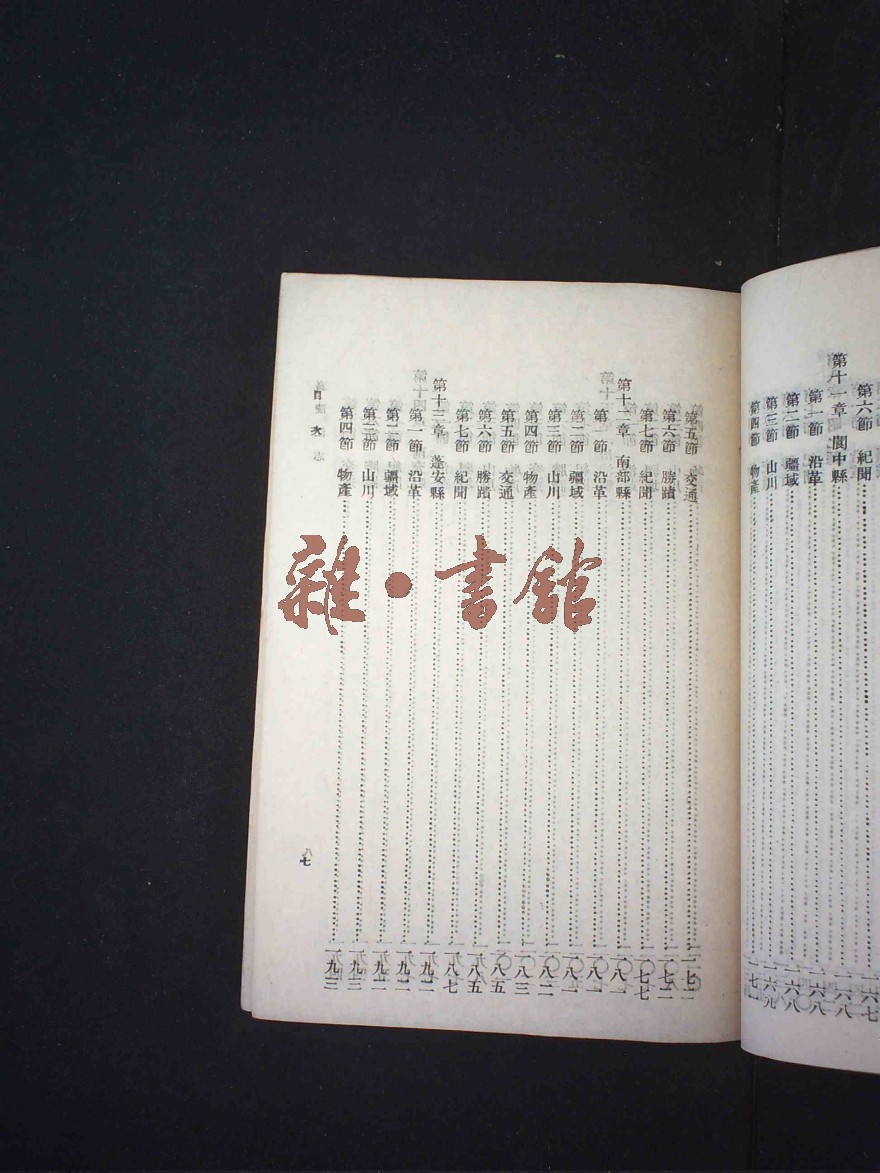 第六節　紀聞……一六七
第十一章　閬中縣……一六八
第一節　沿革……一六八
第二節　疆域……一六八
第三節　山川……一六九
第四節　物產……一七一
第五節　交通……一七二
第六節　勝蹟……一七二
第七節　紀聞……一七七
第十二章　南部縣……一八一
第一節　沿革……一八一
第二節　疆域……一八一
第三節　山川……一八二
第四節　物產……一八三
第五節　交通……一八五
第六節　勝蹟……一八五
第七節　紀聞……一八七
第十三章　蓬安縣……一九二
第一節　沿革……一九二
第二節　疆域……一九二
第三節　山川……一九三
第四節　物產……一九三
目次
七
雜·書館